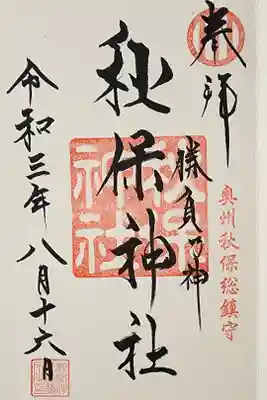 奉拝
奥州秋保総鎮守
勝負の神
秋保神社
令和三年八月十六日